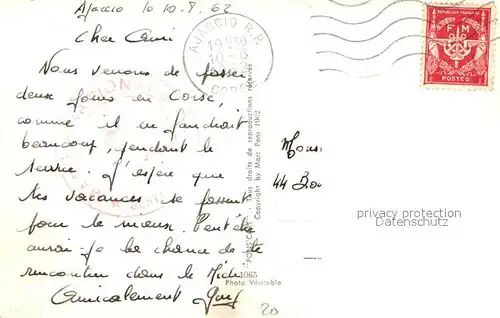 Ajaccio le 10-8-62
Cher Ami
Nous venons de passer
deux jours en Corse,
comme il en faudrait
beaucoup, pendant le
service. J'espère que
tes vacances se passent
pour le mieux. Peut être
aurai-je la chance de te
rencontrer dans le Midi
Amicalement
AJACCIO R.P.
19H30
10-8
CORSE
REPUBLIQUE FRANÇAISE
F M
POSTES
Tous droits de reproductions réservés
Copyright by Marc Pons 1962
1065
Photo Véritable
Mons
44 Bou
privacy protection
Datenschutz
20